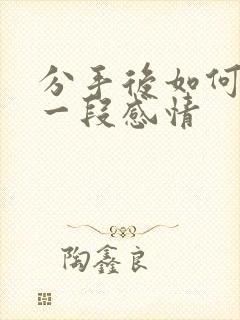 分手後如何
一段感情
陶鑫良